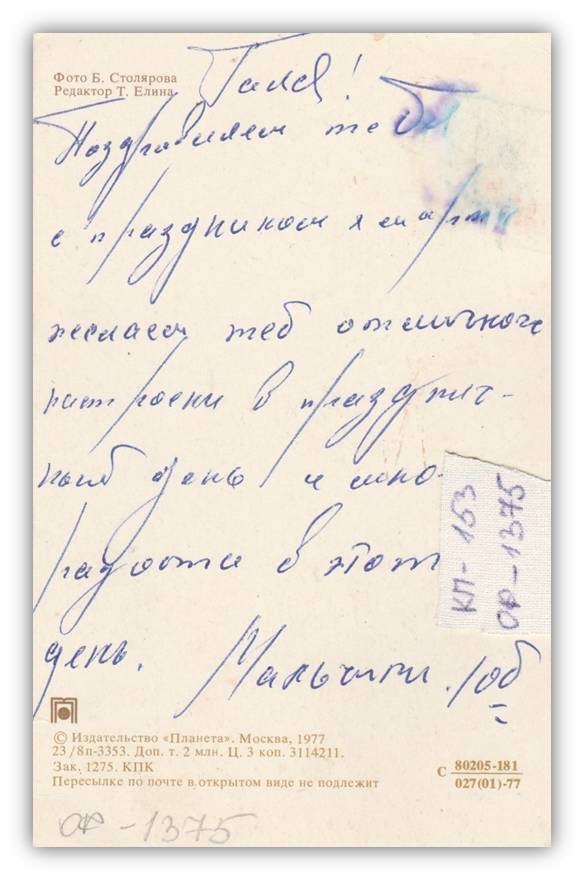 Фото Б. Столярова
Редактор Т. Елина
Галя!
Поздравляем тебя
с праздником 8 марта
желаем теб отличного
настроени в празднич-
ный день и мно
радости в этот
день. Мальчики. 10б
КП - 153
ОФ - 1375
© Издательство «Планета». Москва, 1977
23/8п-3353. Доп. т. 2 млн. Ц. 3 коп. 3114211.
Зак. 1275. КПК
Пересылке по почте в открытом виде не подлежит
С 80205-181
027(01)-77
ОФ - 1375